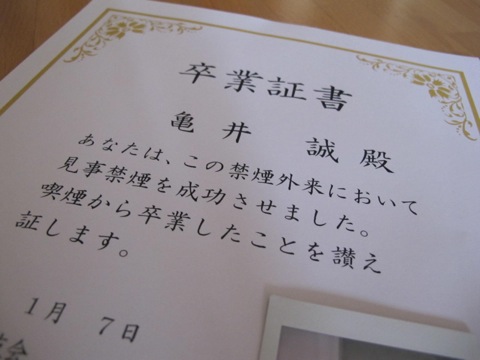 卒業証書
亀井 誠 殿
あなたは、この禁煙外来において
見事禁煙を成功させました。
喫煙から卒業したことを讃え
証します。
1月 7日